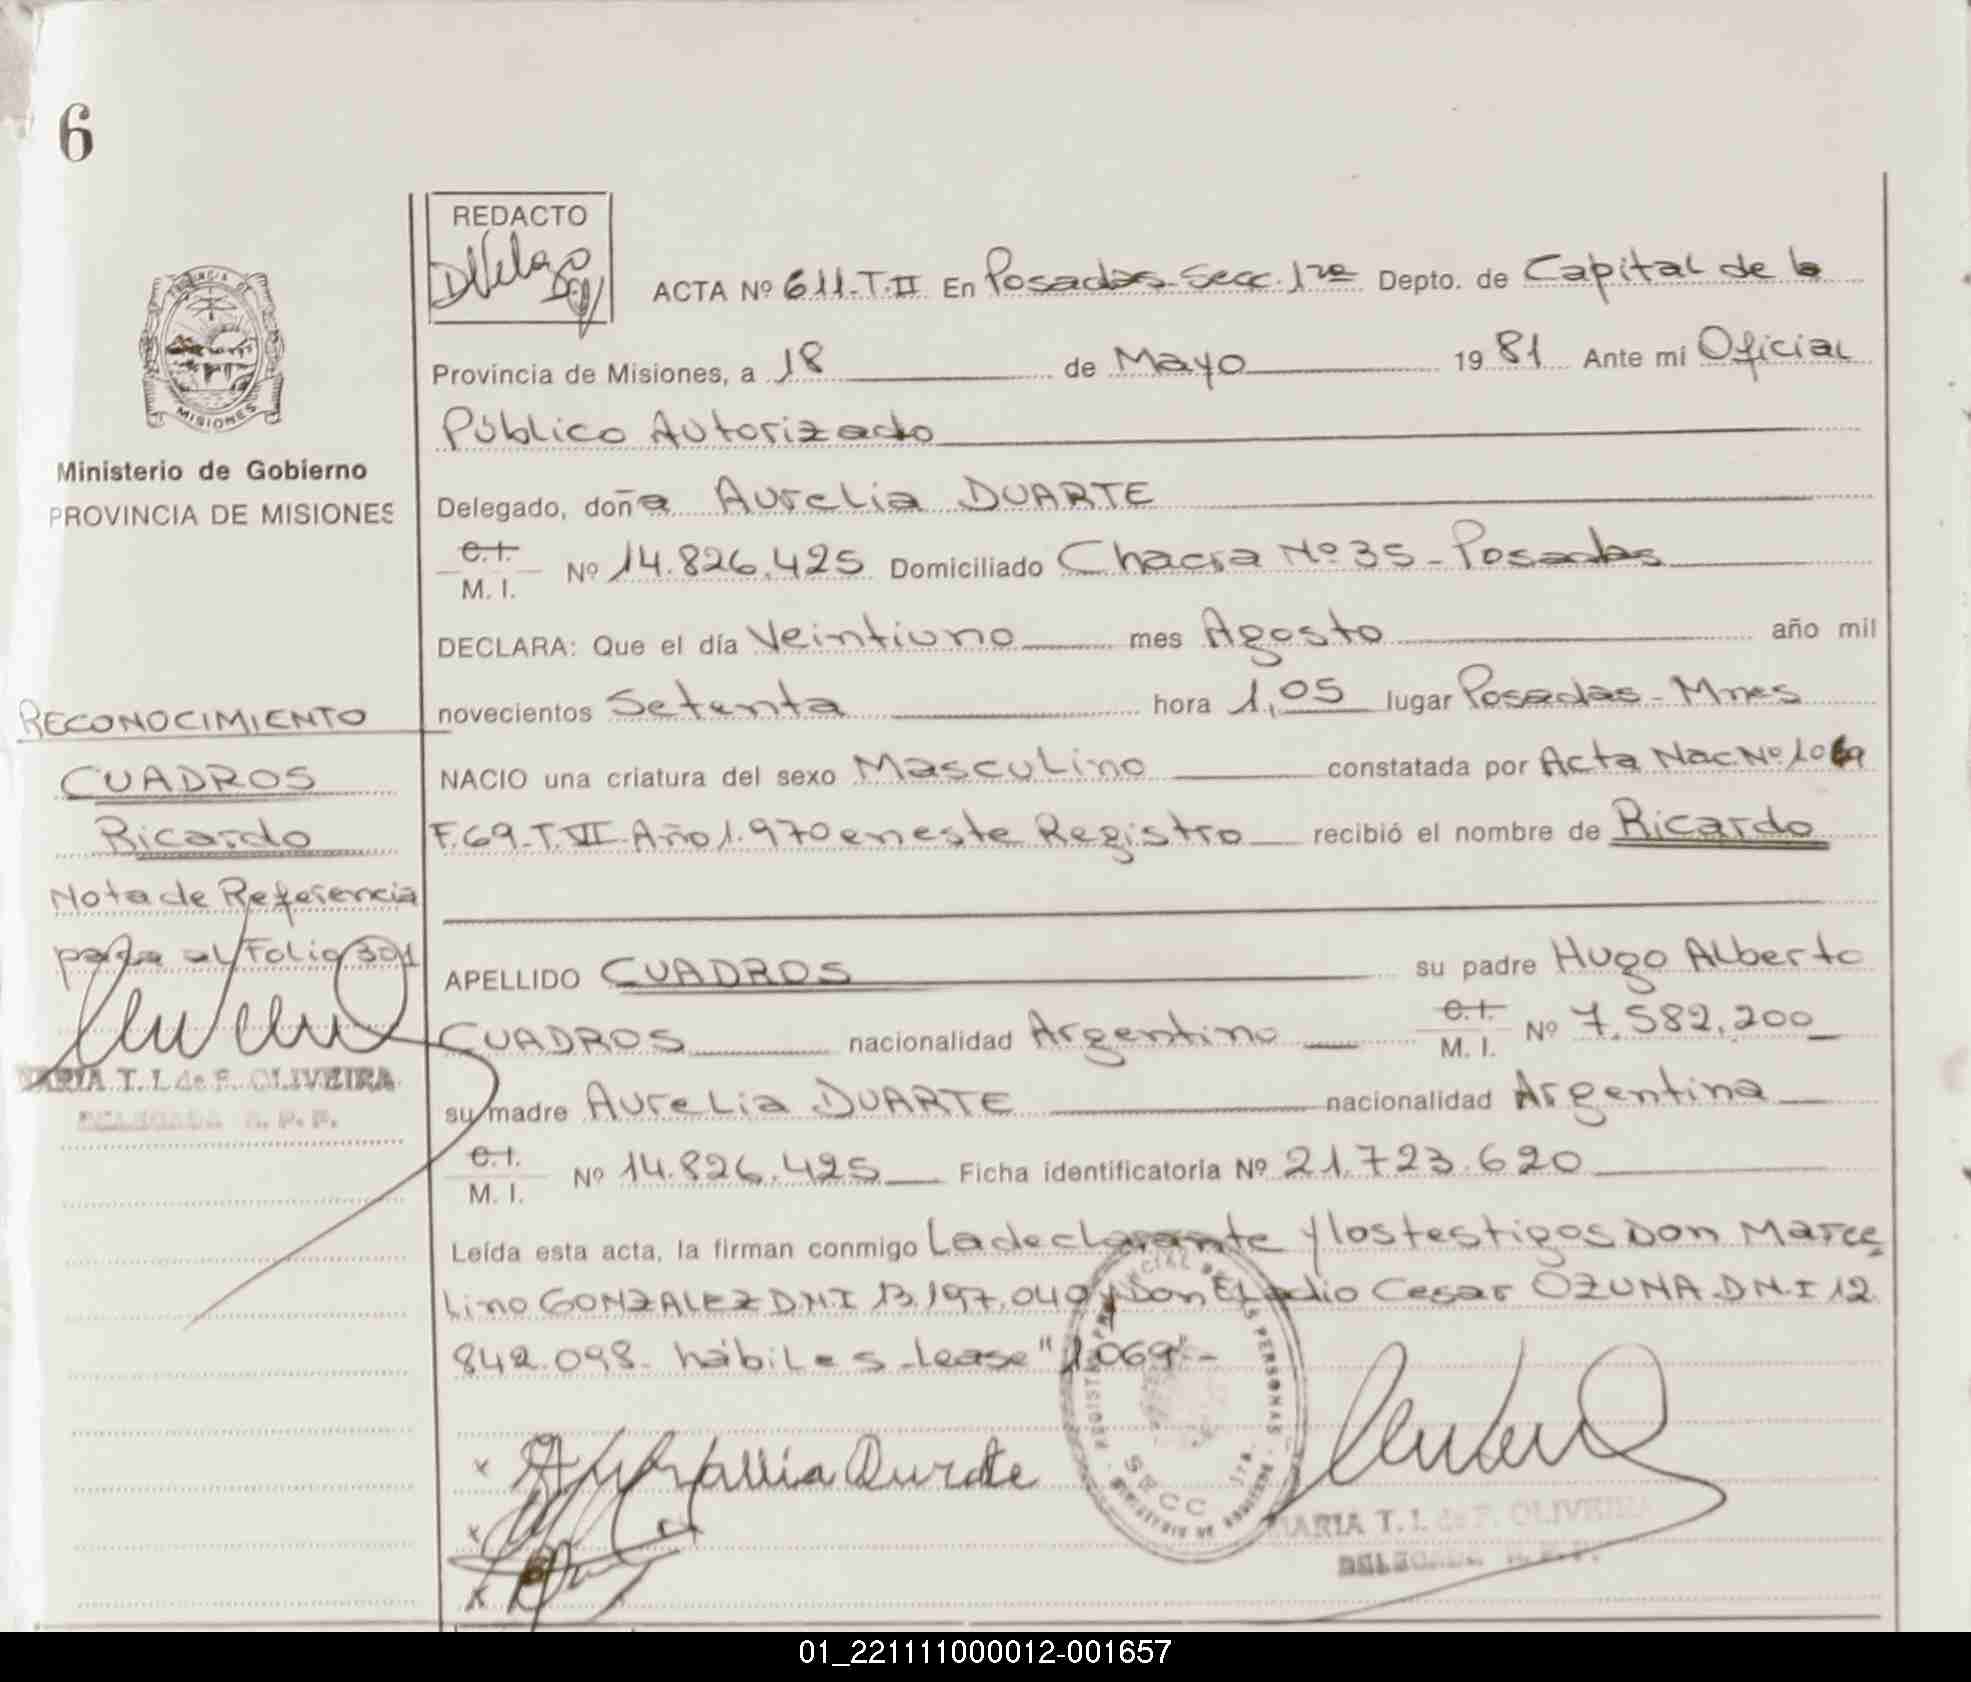 6
REDACTO
ACTA Nº 611-T.II En Posadas-Secc.1ra Depto. de Capital de la
Provincia de Misiones, a 18 de Mayo 1981 Ante mí Oficial
Público Autorizado
MISIONES
Ministerio de Gobierno
PROVINCIA DE MISIONES
Delegado, doña Aurelia DUARTE
C.I.
M. I. Nº 14.826.425 Domiciliado Chacra Nº 35 - Posadas
DECLARA: Que el día Veintiuno mes Agosto año mil
novecientos Setenta hora 1,05 lugar Posadas - Mnes
NACIO una criatura del sexo Masculino constatada por Acta Nac Nº 1069
F.69-T.VII-Año 1.970 en este Registro recibió el nombre de Ricardo
APELLIDO CUADROS su padre Hugo Alberto
CUADROS nacionalidad Argentino C.I. M. I. Nº 7.582.200
su madre Aurelia DUARTE nacionalidad Argentina
C.I.
M. I. Nº 14.826.425 Ficha identificatoria Nº 21.723.620
Leída esta acta, la firman conmigo La declarante y los testigos Don Marce
lino GONZALEZ D.N.I 13.197.040 y Don Eladio Cesar OZUNA D.N.I 12.
842.098- hábiles - lease "1.069" -
RECONOCIMIENTO
CUADROS
Ricardo
Nota de Referencia
pasa al Folio 301
MARIA T. I. de F. OLIVEIRA
DELEGADA R. P. P.
SECC 1ra.
Duarte
MARIA T. I. de F. OLIVEIRA
DELEGADA R. P. P.
01_221111000012-001657